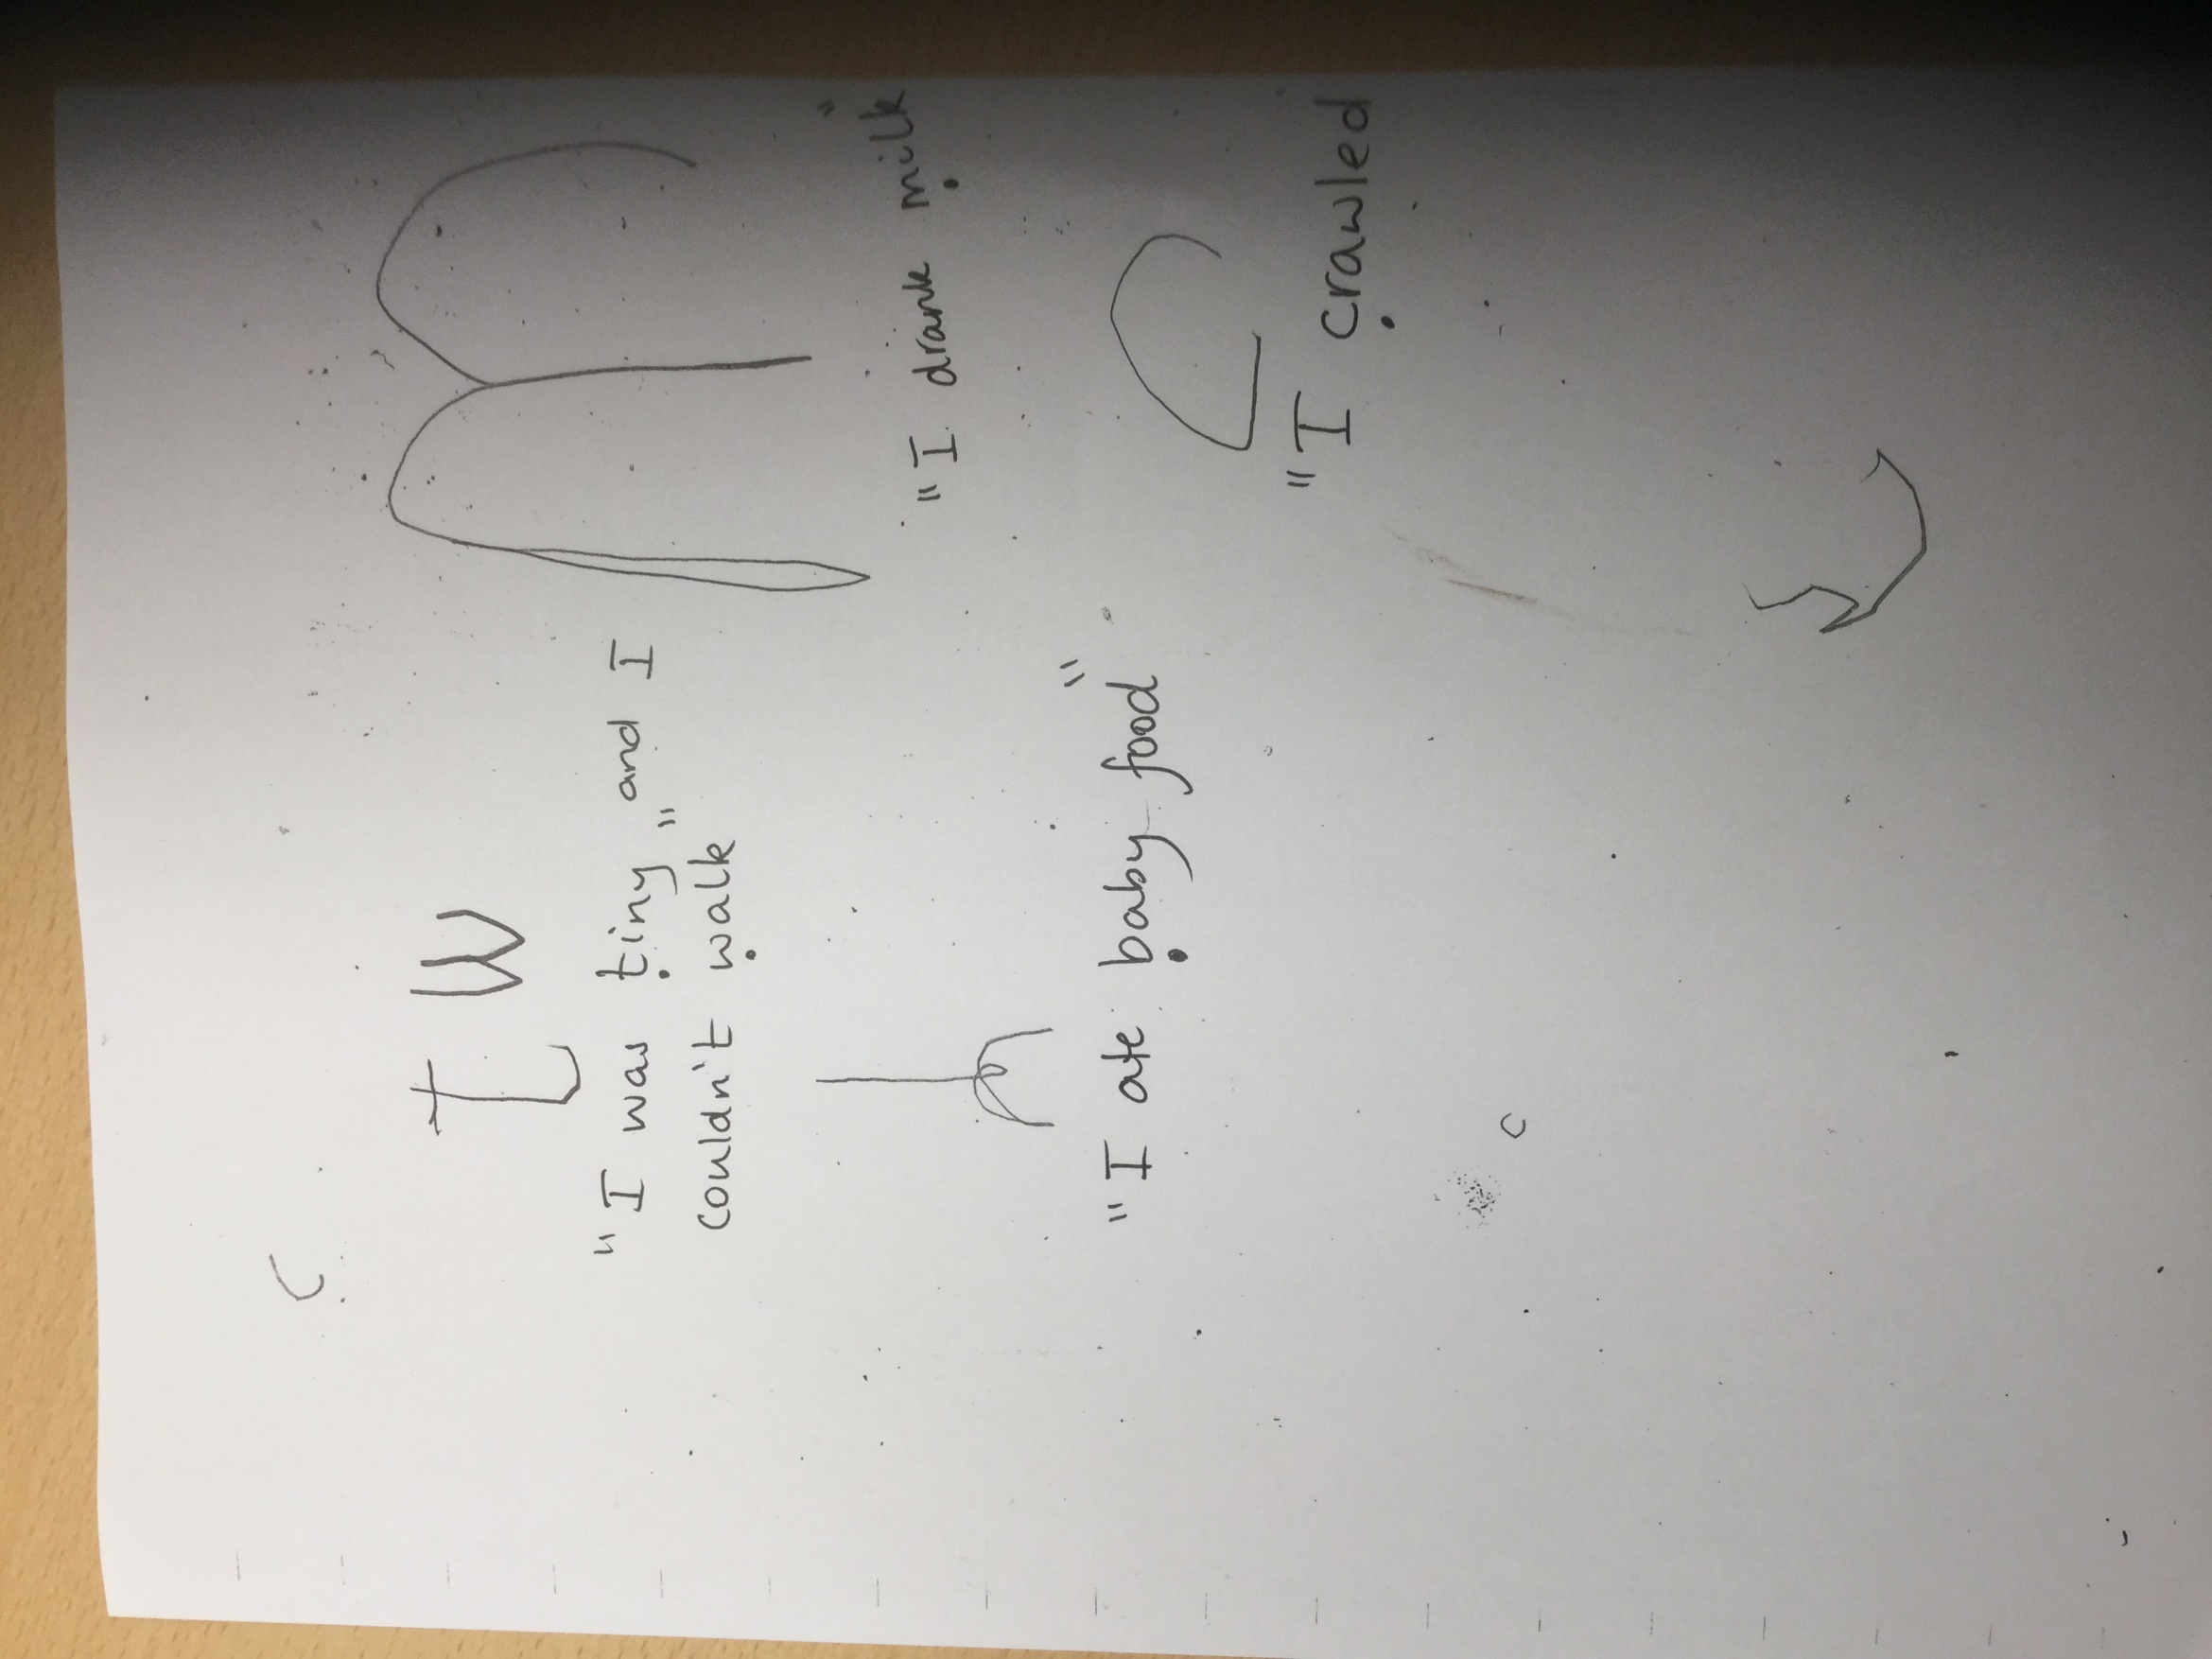 t w
"I was tiny" and I
couldn't walk"
m
"I drank milk"
"I ate baby food"
c
"I crawled